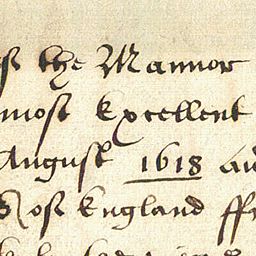 of the Mannor
most Excellent
August 1618 an
of England ff